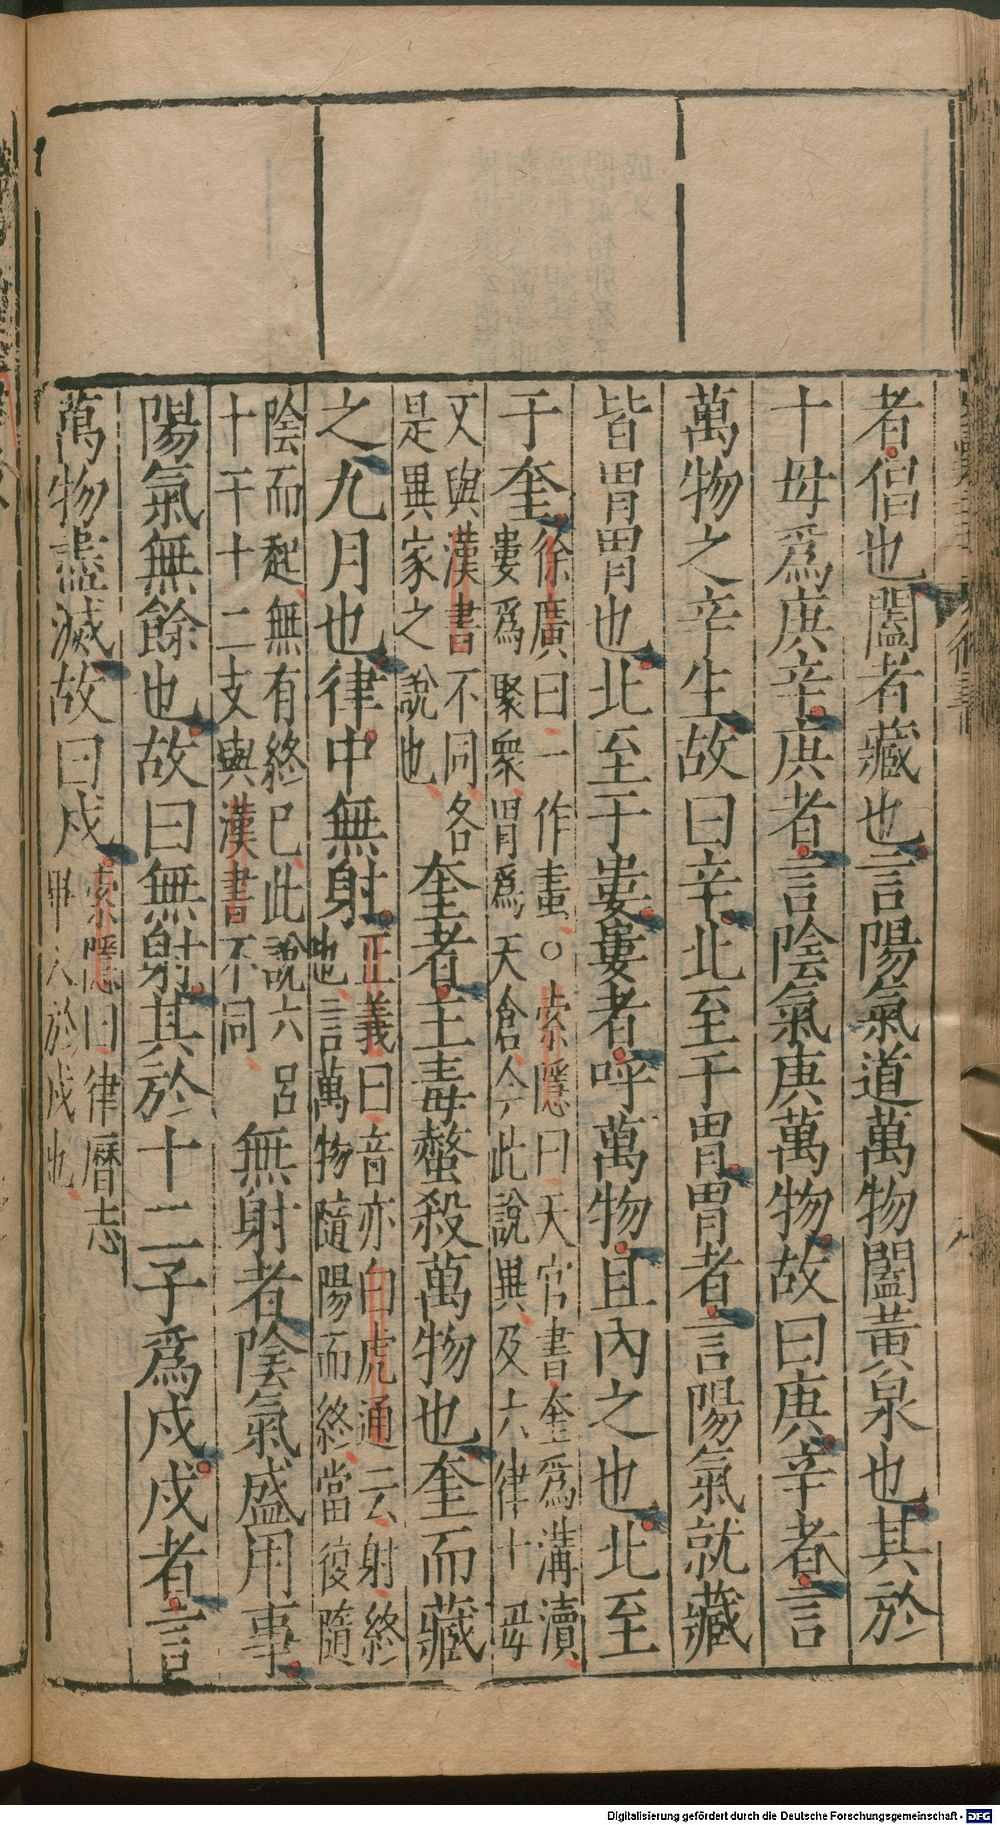 者倡也闔者藏也言陽氣道萬物闔黃泉也其於
十母爲庚辛庚者言陰氣庚萬物故曰庚辛者言
萬物之辛生故曰辛北至于胃胃者言陽氣就藏
皆胃胃也北至于婁婁者呼萬物且內之也北至
于奎徐廣曰一作畫○索隱曰天官書奎爲溝瀆
婁爲聚衆胃爲天倉今此說異及六律十母
又與漢書不同各
是異家之說也奎者主毒螫殺萬物也奎而藏
之九月也律中無射正義曰音亦白虎通云射終
也言萬物隨陽而終當復隨
陰而起無有終已此說六呂
十干十二支與漢書不同無射者陰氣盛用事
陽氣無餘也故曰無射其於十二子爲戌戌者言
萬物盡滅故曰戌索隱曰律曆志
畢入於戌也
Digitalisierung gefördert durch die Deutsche Forschungsgemeinschaft - DFG